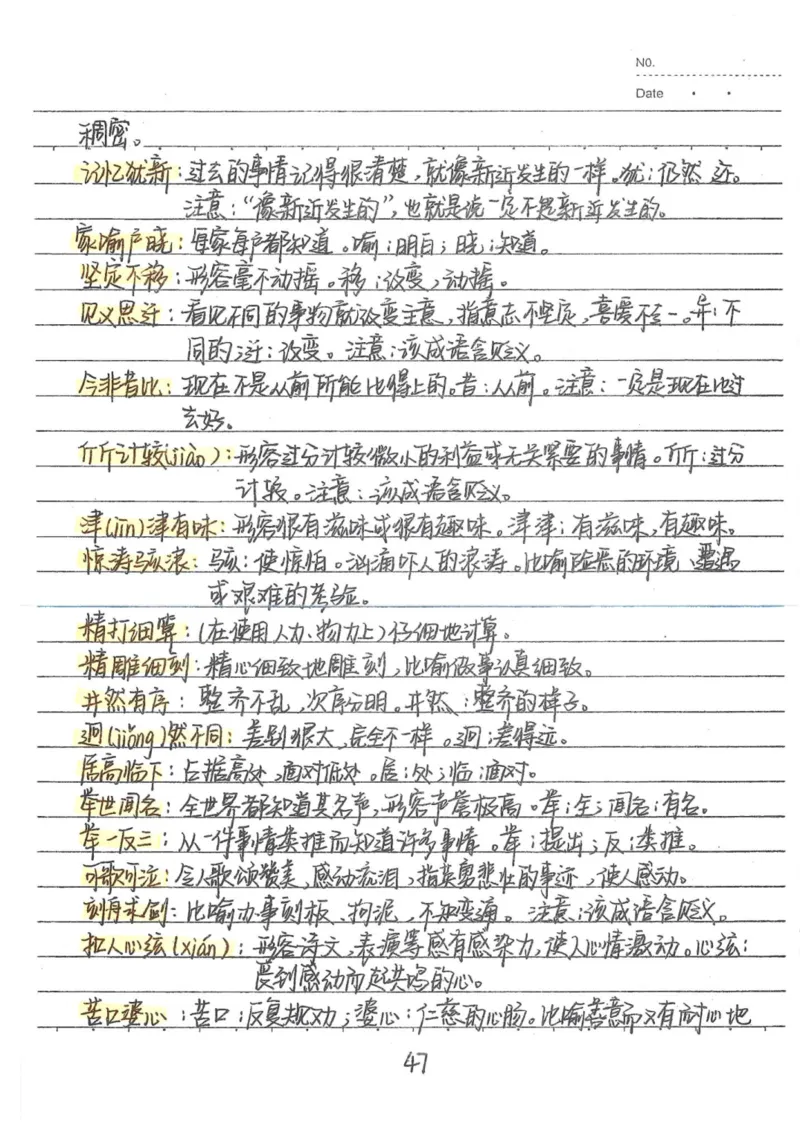 NO.
Date
稠密。
记忆犹新：过去的事情记得很清楚，就像新近发生的一样。犹：仍然 还。
注意：“像新近发生的”，也就是说一定不是新近发生的。
家喻户晓：每家每户都知道。喻：明白；晓：知道。
坚定不移：形容毫不动摇。移：改变，动摇。
见义思迁：看见不同的事物就改变主意，指意志不坚定，喜爱不专一。异：不
同的；迁：改变。注意：该成语含贬义。
今非昔比：现在不是从前所能比得上的。昔：从前。注意：一定是现在比过
去好。
斤斤计较(jiào)：形容过分计较微小的利益或无关紧要的事情。斤斤：过分
计较。注意：该成语含贬义。
津(jīn)津有味：形容很有滋味或很有趣味。津津：有滋味，有趣味。
惊涛骇浪：骇：使惊怕。汹涌吓人的浪涛。比喻险恶的环境 遭遇
或艰难的考验。
精打细算：(在使用人力、物力上)仔细地计算。
精雕细刻：精心细致地雕刻，比喻做事认真细致。
井然有序：整齐不乱，次序分明。井然：整齐的样子。
迥(jiǒng)然不同：差别很大，完全不一样。迥：差得远。
居高临下：占据高处，面对低处。居：处；临：面对。
举世闻名：全世界都知道其名声，形容声誉极高。举：全；闻名：有名。
举一反三：从一件事情类推而知道许多事情。举：提出；反：类推。
可歌可泣：令人歌颂赞美，感动流泪，指英勇悲壮的事迹，使人感动。
刻舟求剑：比喻办事刻板、拘泥，不知变通。注意：该成语含贬义。
扣人心弦(xián)：形容诗文，表演等感有感染力，使人心情激动。心弦：
受到感动而起共鸣的心。
苦口婆心：苦口：反复规劝；婆心：仁慈的心肠。比喻善意而又有耐心地
47